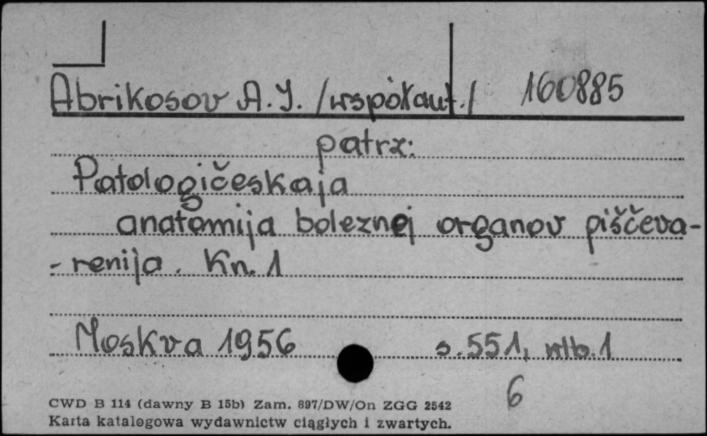 Abrikosov A. J. /współaut./ 160885
patrz:
Patologičeskaja
anatomija boleznej organov piščeva-
-renija. Kn. 1
Moskva 1956 s. 551, nlb. 1
6
CWD B 114 (dawny B 15b) Zam. 897/DW/On ZGG 2542
Karta katalogowa wydawnictw ciągłych i zwartych.